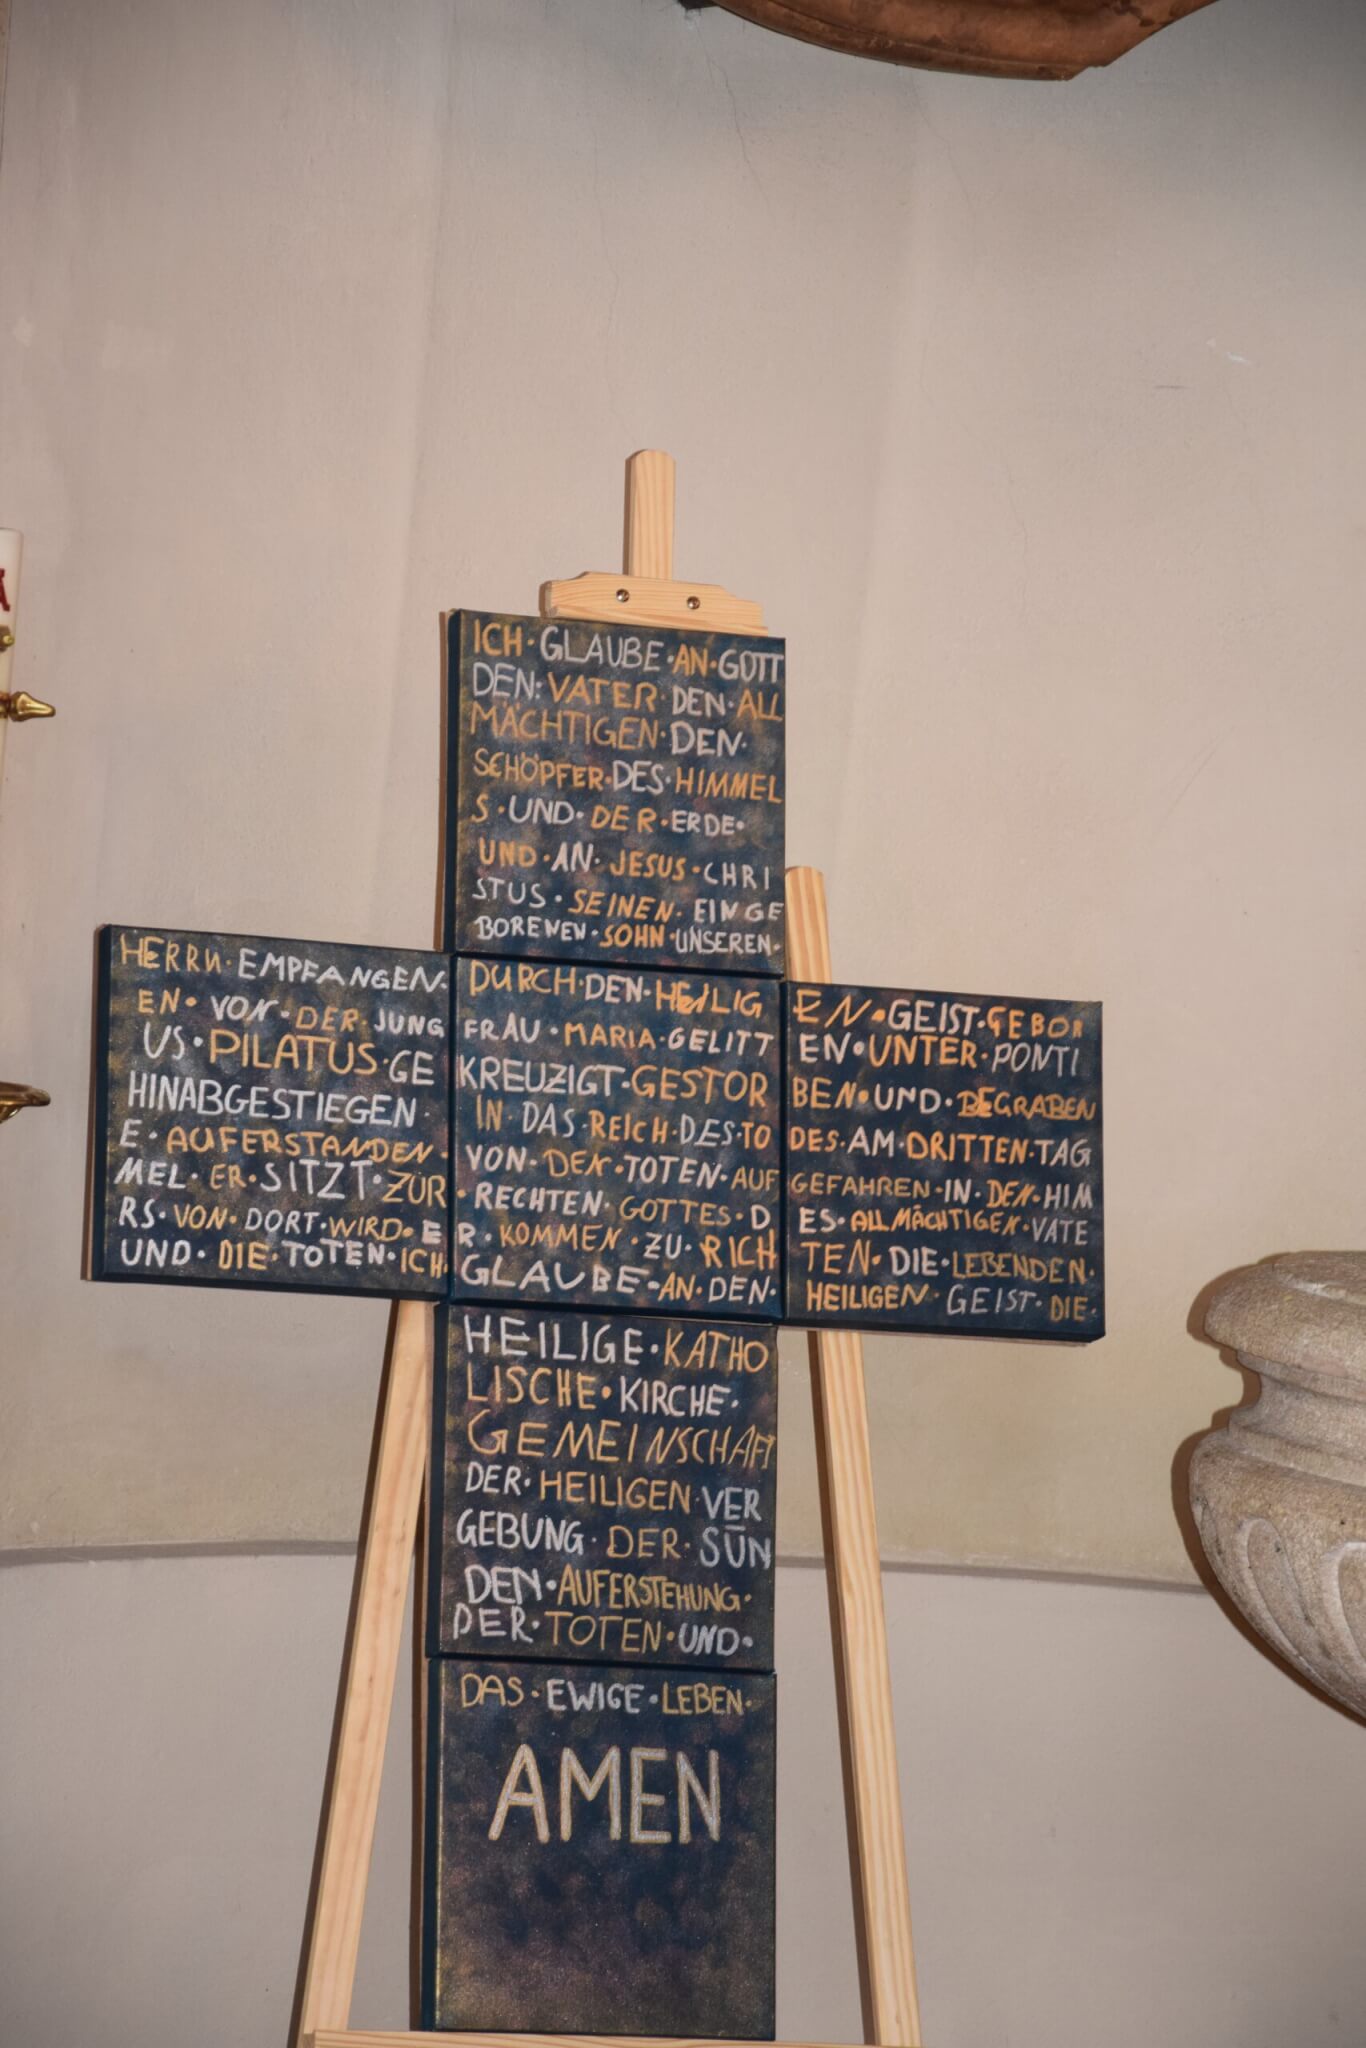 ICH·GLAUBE·AN·GOTT
DEN:VATER·DEN·ALL
MÄCHTIGEN·DEN·
SCHÖPFER·DES·HIMMEL
S·UND·DER·ERDE·
UND·AN·JESUS·CHRI
STUS·SEINEN·EINGE
BORENEN·SOHN·UNSEREN·
HERRN·EMPFANGEN·DURCH·DEN·HEILIG EN·GEIST·GEBOR
EN·VON·DER·JUNG FRAU·MARIA·GELITT EN·UNTER·PONTI
US·PILATUS·GE KREUZIGT·GESTOR BEN·UND·BEGRABEN
HINABGESTIEGEN·IN·DAS·REICH·DES·TO DES·AM·DRITTEN·TAG
E·AUFERSTANDEN·VON·DEN·TOTEN·AUF GEFAHREN·IN·DEN·HIM
MEL·ER·SITZT·ZUR·RECHTEN·GOTTES·D ES·ALLMÄCHTIGEN·VATE
RS·VON·DORT·WIRD·E R·KOMMEN·ZU·RICH TEN·DIE·LEBENDEN·
UND·DIE·TOTEN·ICH·GLAUBE-AN·DEN·HEILIGEN·GEIST·DIE·
HEILIGE·KATHO
LISCHE·KIRCHE·
GEMEINSCHAFT
DER·HEILIGEN·VER
GEBUNG·DER·SÜN
DEN·AUFERSTEHUNG·
DER·TOTEN·UND·
DAS·EWIGE·LEBEN·
AMEN